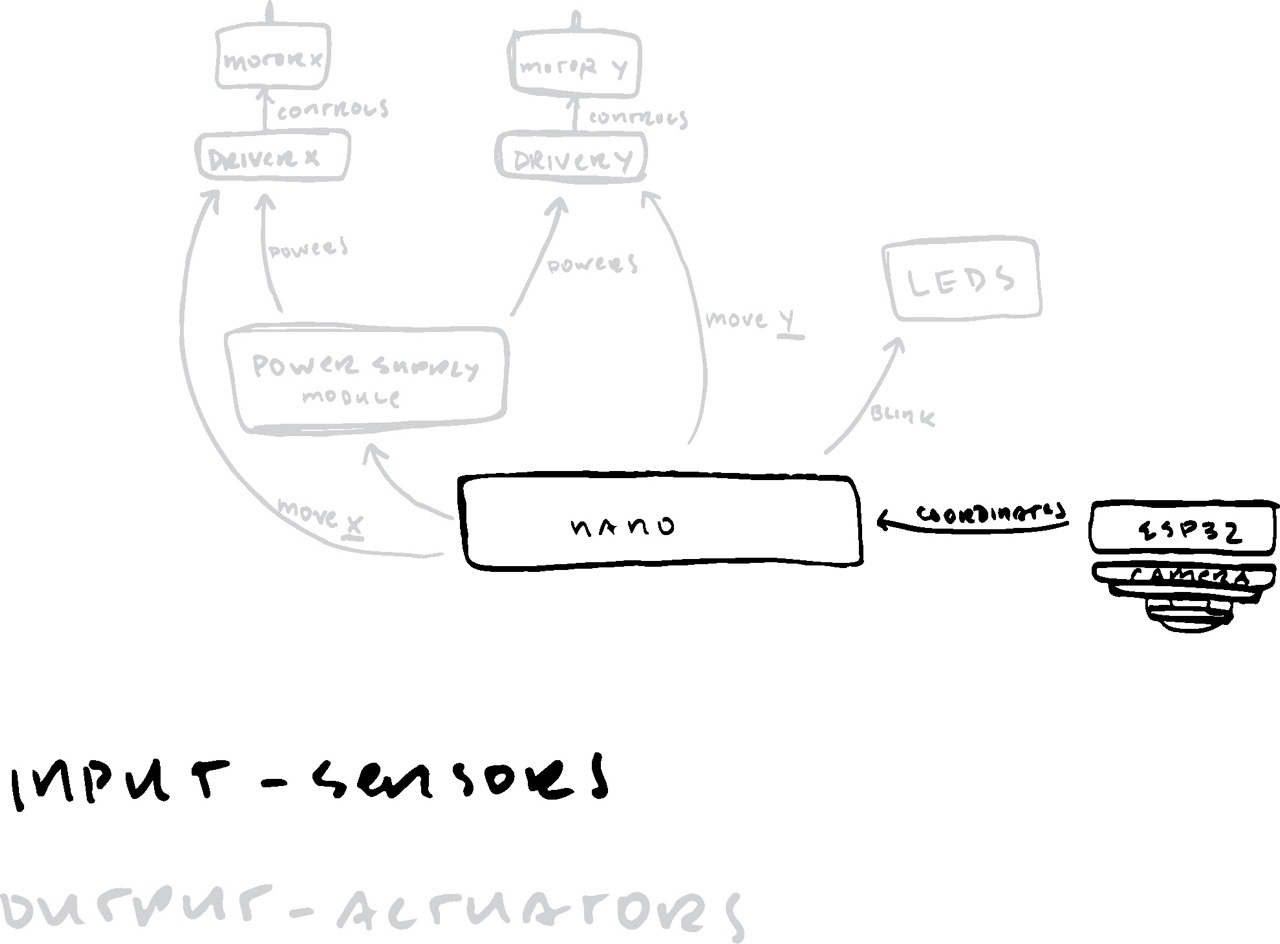 MOTOR X
MOTOR Y
CONTROLS
CONTROLS
DRIVER X
DRIVER Y
POWERS
POWERS
LEDS
move Y
POWER SUPPLY
MODULE
BLINK
move X
NANO
COORDINATES
ESP32
CAMERA
INPUT - SENSORS
OUTPUT - ACTUATORS